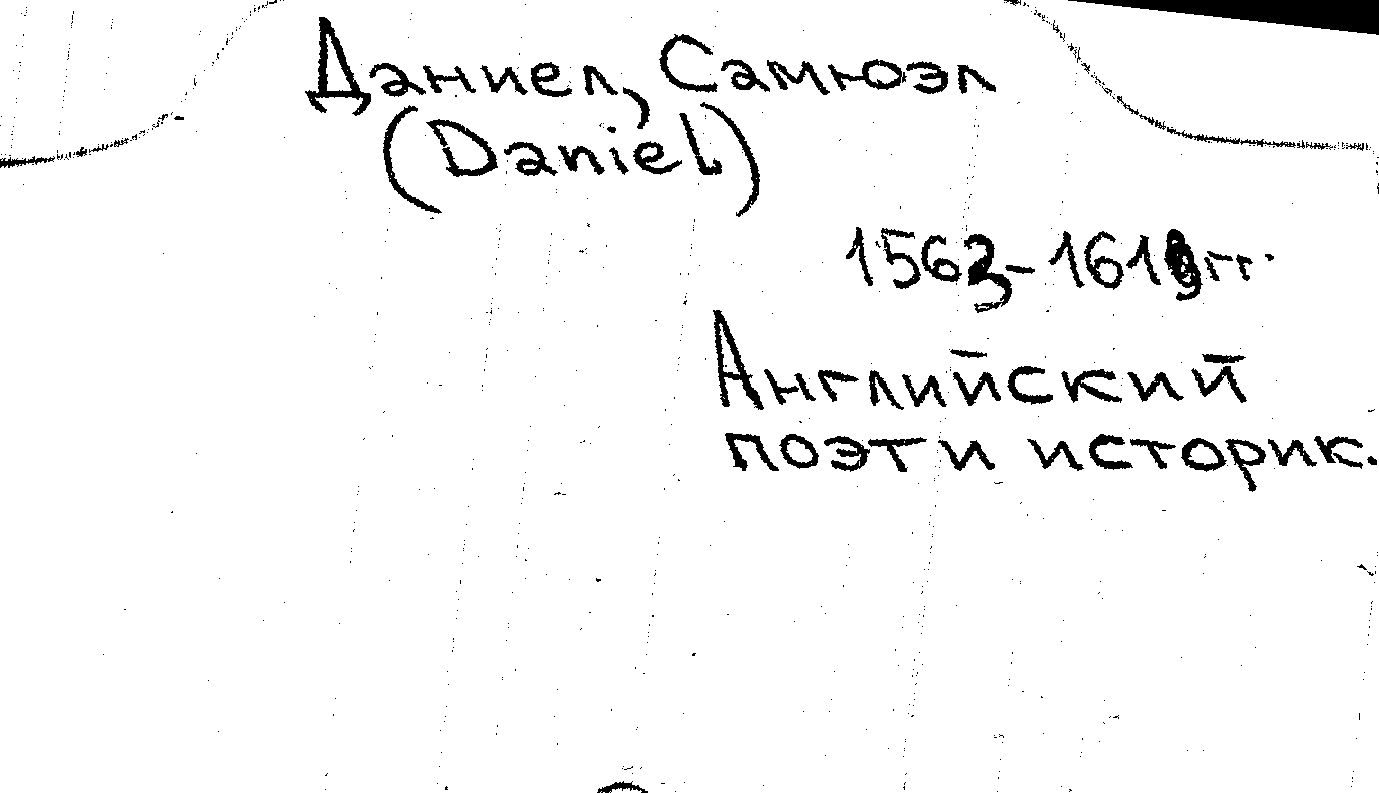 Даниел, Самюэл
(Daniel)
1563-1619гг.
Английский
поэт и историк.